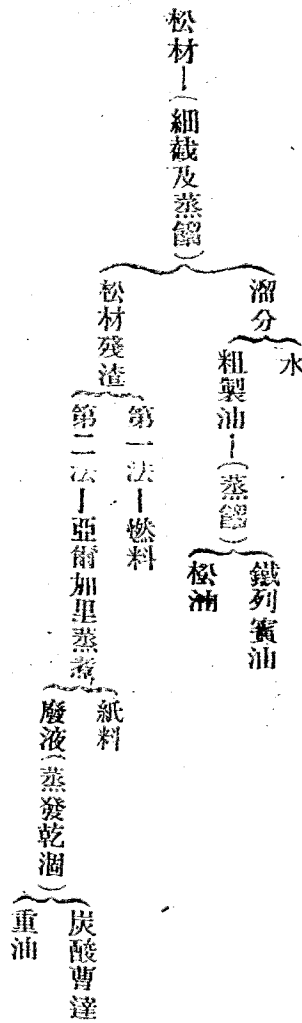 松材—(細截及蒸餾)
溜分
水
粗製油—(蒸餾)
鐵列賓油
松油
松材殘渣
第一法—燃料
第二法—亞爾加里蒸煮
紙料
廢液(蒸發乾涸)
炭酸曹達
重油